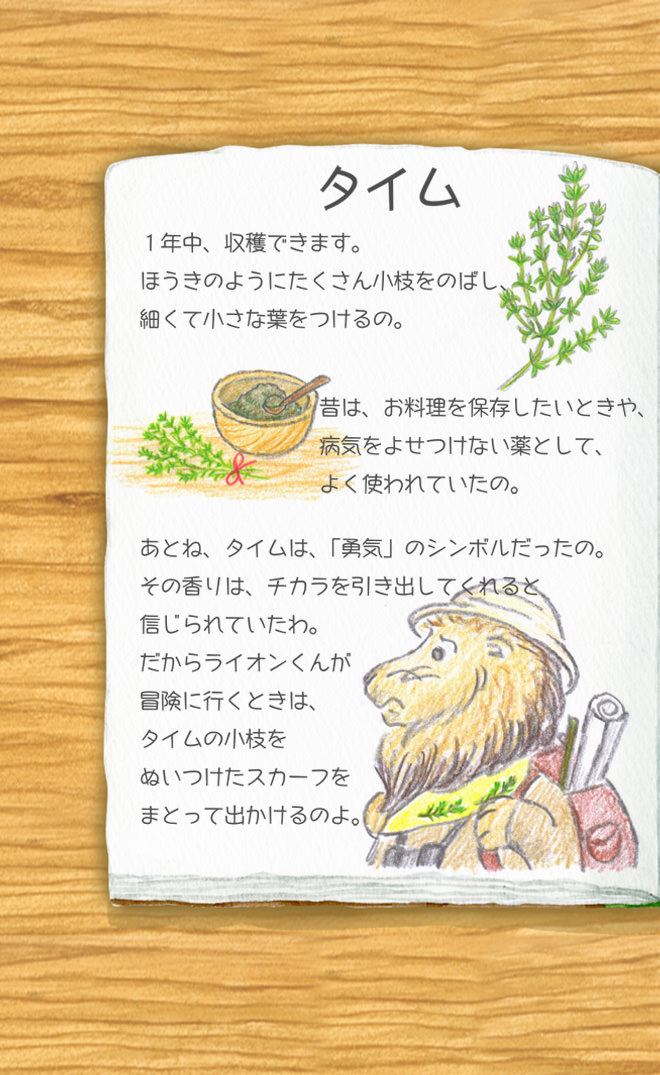 タイム
１年中、収穫できます。
ほうきのようにたくさん小枝をのばし、
細くて小さな葉をつけるの。
昔は、お料理を保存したいときや、
病気をよせつけない薬として、
よく使われていたの。
あとね、タイムは、「勇気」のシンボルだったの。
その香りは、チカラを引き出してくれると
信じられていたわ。
だからライオンくんが
冒険に行くときは、
タイムの小枝を
ぬいつけたスカーフを
まとって出かけるのよ。